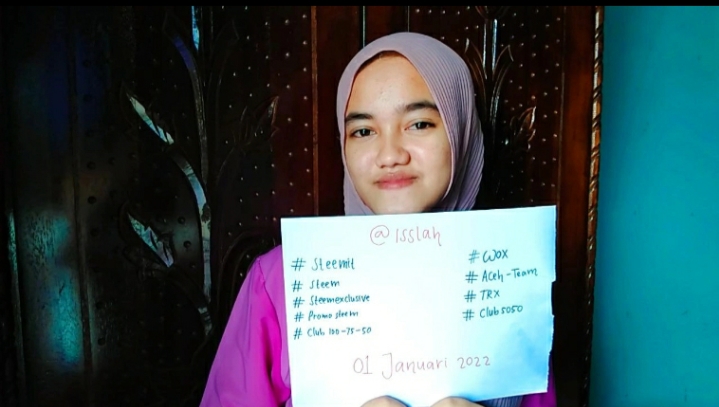 @isslah
# Steemit
# Steem
# Steemexclusive
# Promo steem
# Club 100-75-50
# WOX
# Aceh-Team
# TRX
# Club5050
01 Januari 2022